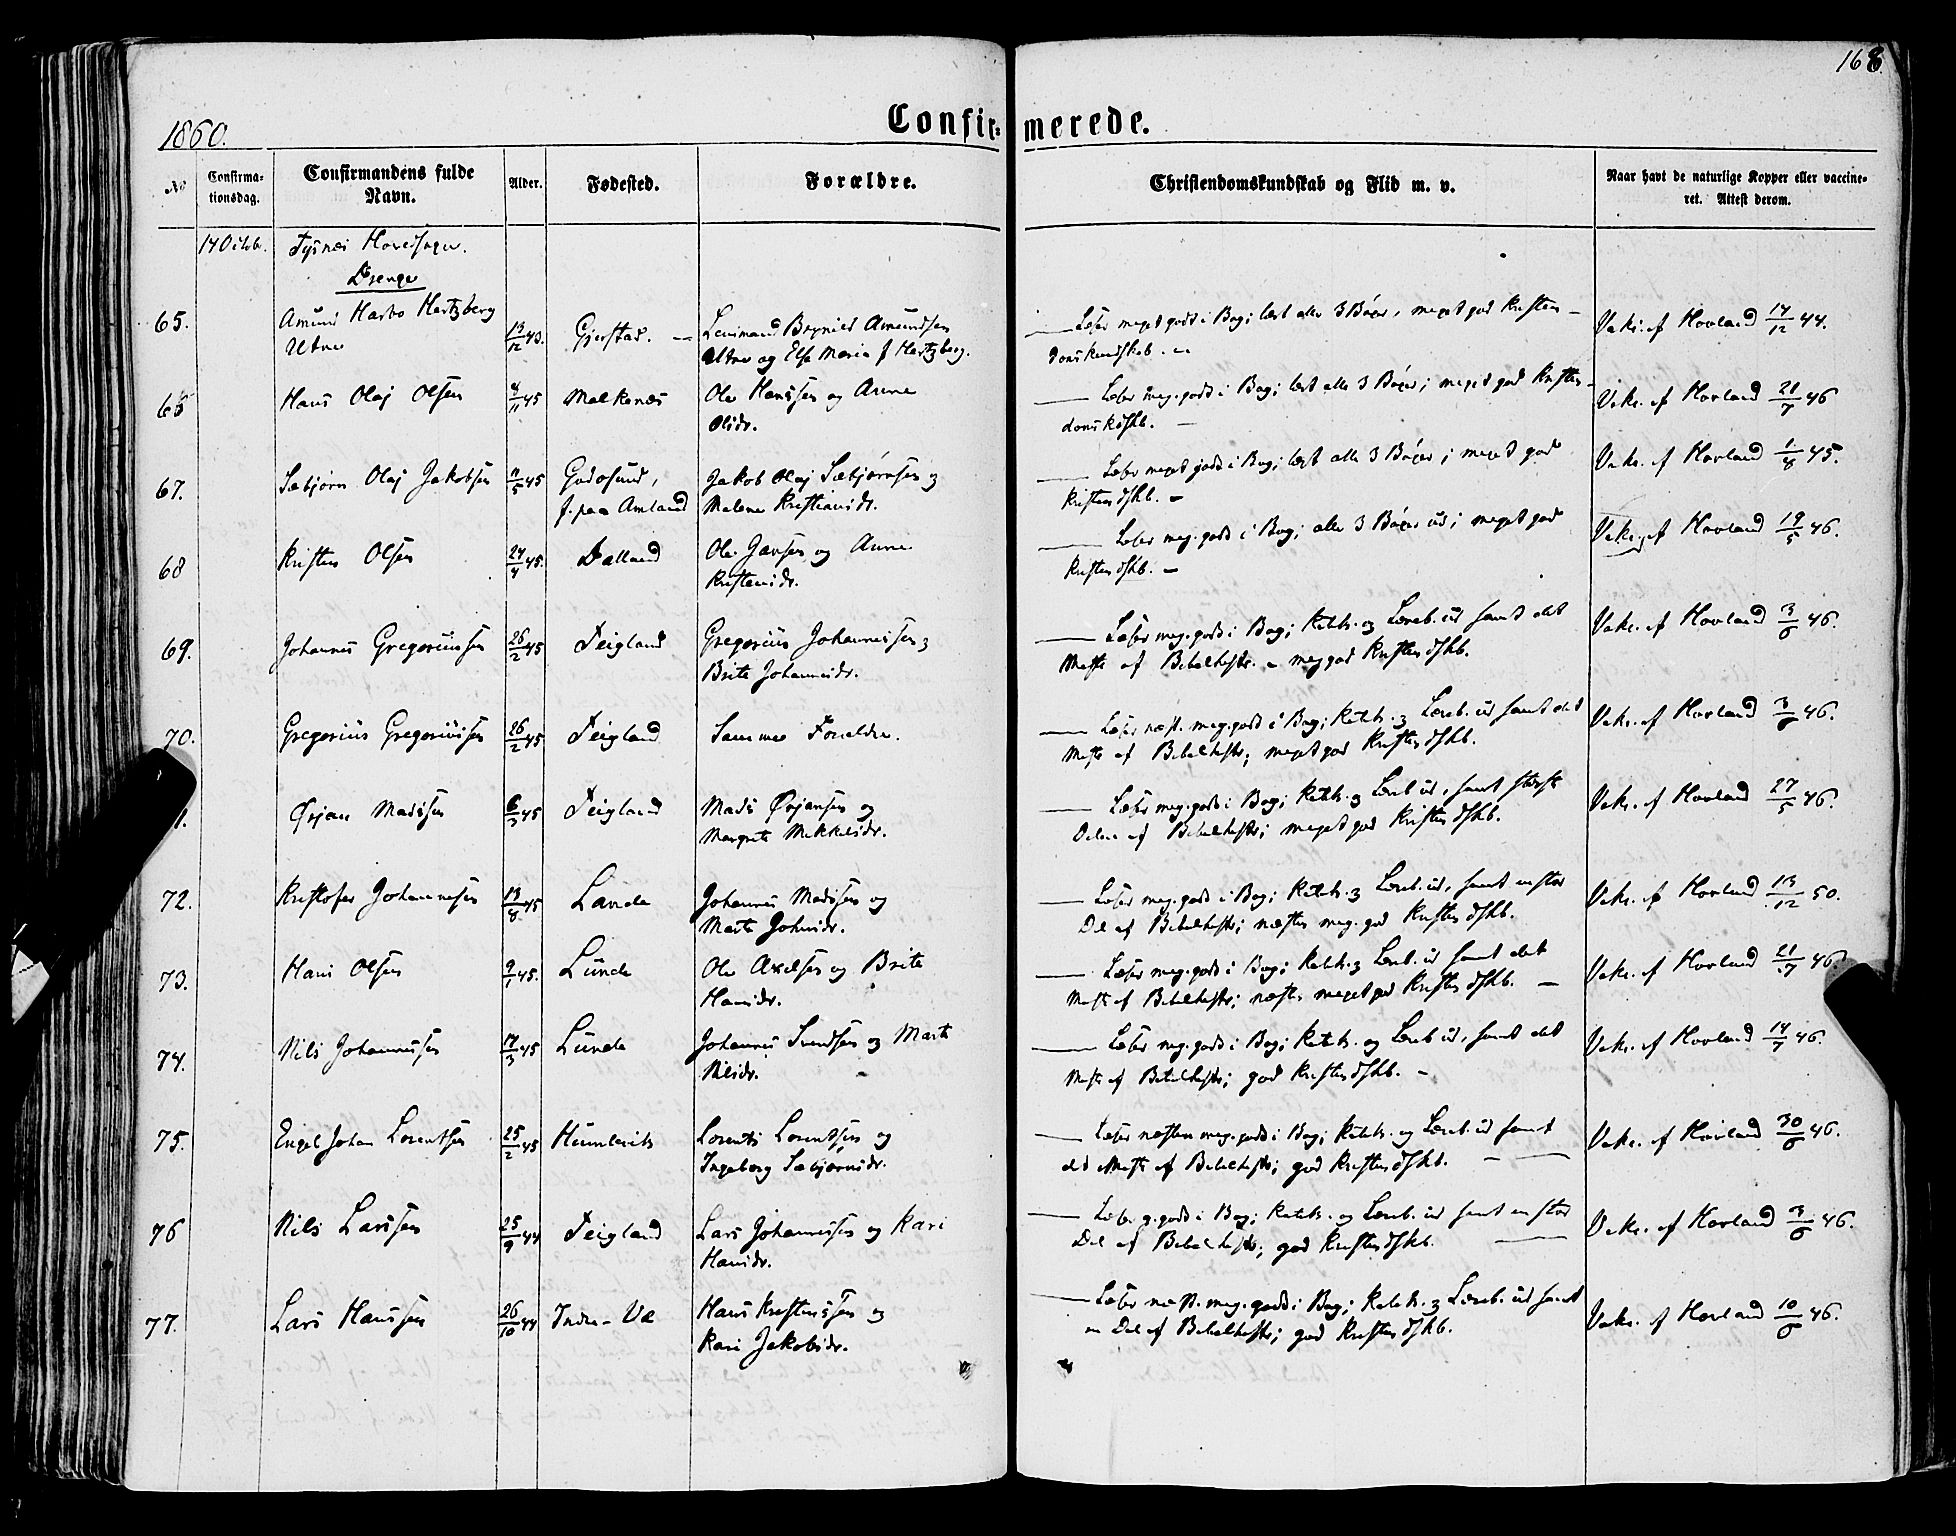 168.
1860.
Confir- merede.
No
Confirmationsdag.
Confirmandens fulde Navn.
Alder.
Fødested.
Forældre.
Christendomskundskab og Flid m. v.
Naar havt de naturlige Kopper eller vaccineret. Attest derom.
14 Octbr. Tysnes Hovedsogn.
Drenge
65. Amund Harbo Hertzberg 13/12 43. Gjerstad. Lensmand Brynild Amundsen Læser meget godt i Bog; læst alle 3 Bøger, meget god Kristen- Vakc. af Hovland 14/12 44.
Utne Utne og Else Maria f Hertzberg. domskundskab.
66 Hans Olaj Olsen 4/11 45 Malkenes Ole Hanssen og Anne Læser meg. godt i Bog; læst alle 3 Bøger; meget god Kristen- Vakc. af Hovland 21/7 46
Olsdr. domskdskb.
67. Sæbjørn Olaj Jakobsen 11/5 45 Godøsund, Jakob Olaj Sæbjørnsen og Læser meget godt i Bog; læst alle 3 Bøger; meget god Vakc. af Hovland 1/8 45.
f. paa Amland Malene Kristiansdr. Kristendskb.
68 Kristen Olsen 24/4 45. Dalland Ole Jansen og Anne Læser meg. godt i Bog; alle 3 Bøger ud; meget god Vakc. af Hovland 19/5 46.
Kristensdr. Kristendskb.
69. Johannes Gregoriussen 26/2 45 Teigland Gregorius Johannessen og Læser meg. godt i Bog; Katek. og Læreb. ud samt det Vakc. af Hovland 3/6 46.
Brite Johannesdr. Meste af Bibelhistr. meg god Kristendskb.
70. Gregorius Gregoriussen 26/2 45 Teigland Samme Forældre. Læser næst. meg. godt i Bog; Katek. og Læreb. ud samt det Vakc. af Hovland 3/6 46.
Meste af Bibelhistr; meget god Kristendskb.
1. Ørjan Madssen 6/3 45 Teigland Mads Ørjansen og Læser meg. godt i Bog; Katek. og Læreb. ud, samt største Vakc. af Hovland 27/5 46.
Margrete Mikkelsdr. Delen af Bibelhistr; meget god Kristendskb.
72. Kristofer Johannessen 13/8 45 Lande Johannes Madssen og Læser meg. godt i Bog; Katek. og Læreb. ud, samt en stor Vakc. af Hovland 13/12 50.
Marte Johnsdr. Del af Bibelhistr; næsten meg. god Kristendskb.
73. Hans Olsen 9/1 45. Lunde Ole Axelsen og Brite Læser meg. godt i Bog; Katek. og Læreb. ud samt det Vakc. af Hovland 21/7 46.
Hansdr. Meste af Bibelhistr; næsten meget god Kristendskb.
74. Nils Johannessen 14/3 45 Lunde Johannes Svendsen og Marte Læser meg. godt i Bog; Katek. og Læreb. ud, samt det Vakc. af Hovland 14/7 46.
Nilsdr. Meste af Bibelhistr; god Kristendskb.
75. Engel Johan Lorentsen 25/2 45 Humlevik Lorents Lorentsen og Læser næsten meg. godt i Bog; Katek. og Læreb. ud samt Vakc. af Hovland 30/6 46.
Ingeborg Sæbjørnsdr. det Meste af Bibelhistr; god Kristendskb.
76 Nils Larssen 25/9 44 Teigland Lars Johannessen og Kari Læser g. godt i Bog; Katek. og Læreb. ud samt en stor Vakc. af Hovland 3/6 46.
Hansdr. Del af Bibelhistr; god Kristendskb.
77. Lars Hanssen 26/10 44 Indre-Ve Hans Kristenssen og Læser næst. meg. godt i Bog; Katek. og Læreb. ud samt Vakc. af Hovland 10/6 46.
Kari Jakobsdr. en Del af Bibelhistr; god Kristendskb.